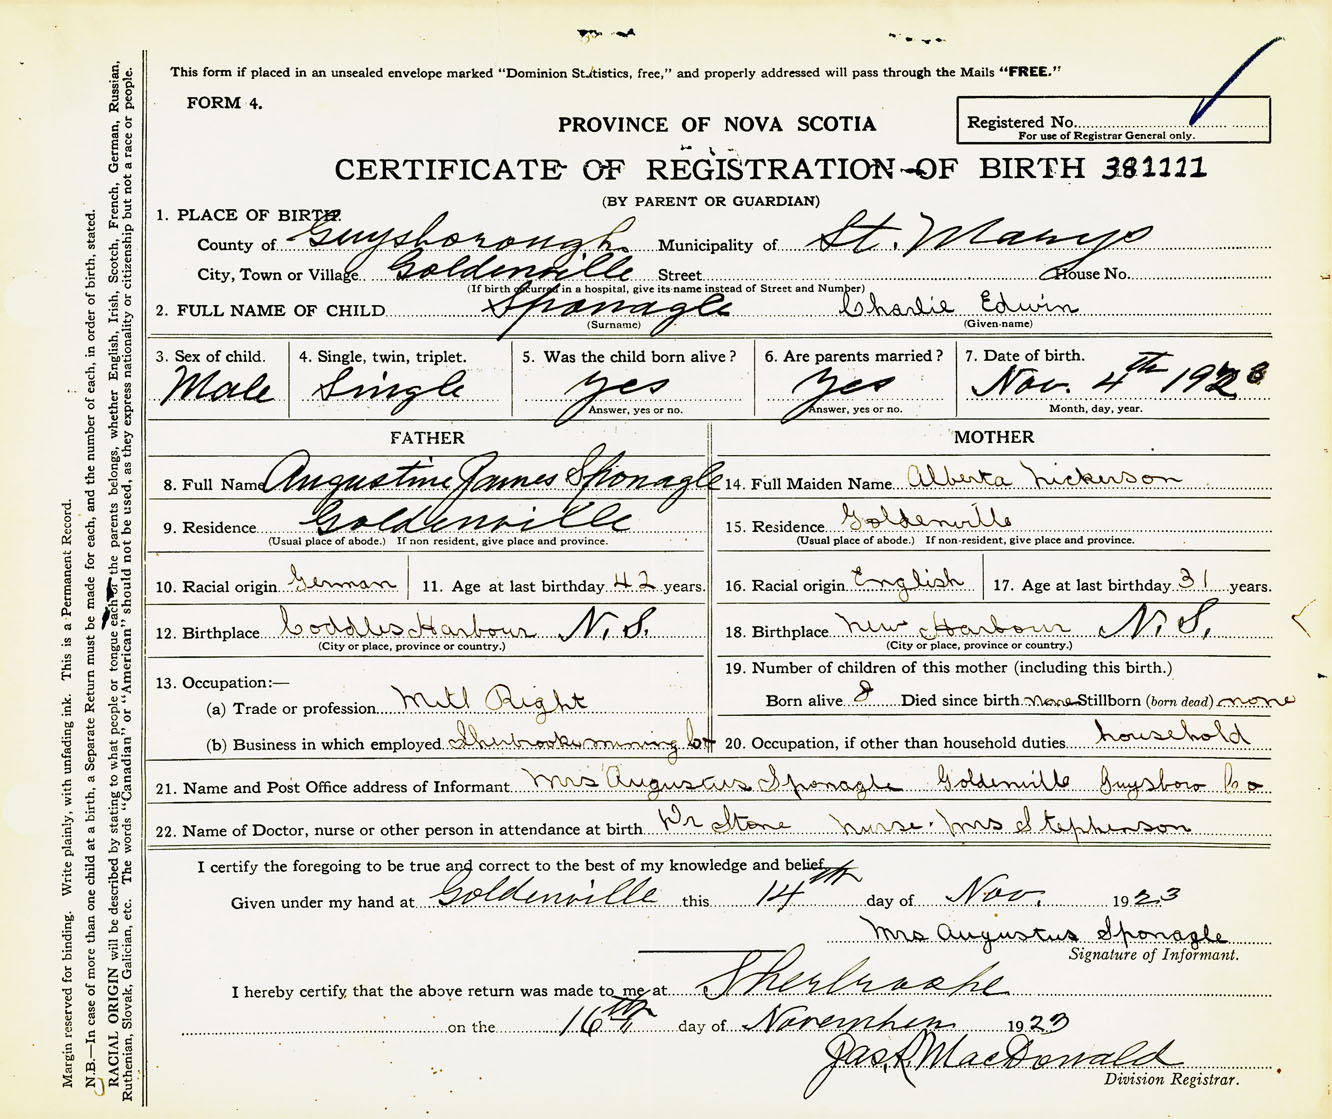 This form if placed in an unsealed envelope marked "Dominion Statistics, free," and properly addressed will pass through the Mails "FREE."
FORM 4.
Registered No.
For use of Registrar General only.
PROVINCE OF NOVA SCOTIA
CERTIFICATE OF REGISTRATION OF BIRTH 381111
(BY PARENT OR GUARDIAN)
1. PLACE OF BIRTH.
County of Guysborough Municipality of St. Marys
City, Town or Village Goldenville Street House No.
(If birth occurred in a hospital, give its name instead of Street and Number)
2. FULL NAME OF CHILD Sponagle Charlie Edwin
(Surname) (Given name)
3. Sex of child. 4. Single, twin, triplet. 5. Was the child born alive? 6. Are parents married? 7. Date of birth.
Male Single yes yes Nov. 4th 1923
Answer, yes or no. Answer, yes or no. Month, day, year.
FATHER MOTHER
8. Full Name Augustine James Sponagle 14. Full Maiden Name Alberta Nickerson
9. Residence Goldenville 15. Residence Goldenville
(Usual place of abode.) If non resident, give place and province. (Usual place of abode.) If non-resident, give place and province.
10. Racial origin German 11. Age at last birthday 42 years. 16. Racial origin English 17. Age at last birthday 31 years.
12. Birthplace Coddles Harbour N. S. 18. Birthplace New Harbour N. S.
(City or place, province or country.) (City or place, province or country.)
13. Occupation:— 19. Number of children of this mother (including this birth.)
(a) Trade or profession Mill Right Born alive 8 Died since birth none Stillborn (born dead) none
(b) Business in which employed Sherbrooke mining Co 20. Occupation, if other than household duties household
21. Name and Post Office address of Informant Mrs Augustus Sponagle Goldenville Guysboro Co
22. Name of Doctor, nurse or other person in attendance at birth Dr Stone nurse. Mrs Stephenson
I certify the foregoing to be true and correct to the best of my knowledge and belief
Given under my hand at Goldenville this 14th day of Nov. 1923
Mrs Augustus Sponagle
Signature of Informant.
I hereby certify that the above return was made to me at Sherbrooke
on the 16th day of November 1923
Jas. R. MacDonald
Division Registrar.
Margin reserved for binding. Write plainly, with unfading ink. This is a Permanent Record.
N.B.—In case of more than one child at a birth, a Separate Return must be made for each, and the number of each, in order of birth, stated.
RACIAL ORIGIN will be described by stating to what people or tongue each of the parents belongs, whether English, Irish, Scotch, French, German, Russian,
Ruthenian, Slovak, Galician, etc. The words "Canadian" or "American" should not be used, as they express nationality or citizenship but not a race or people.